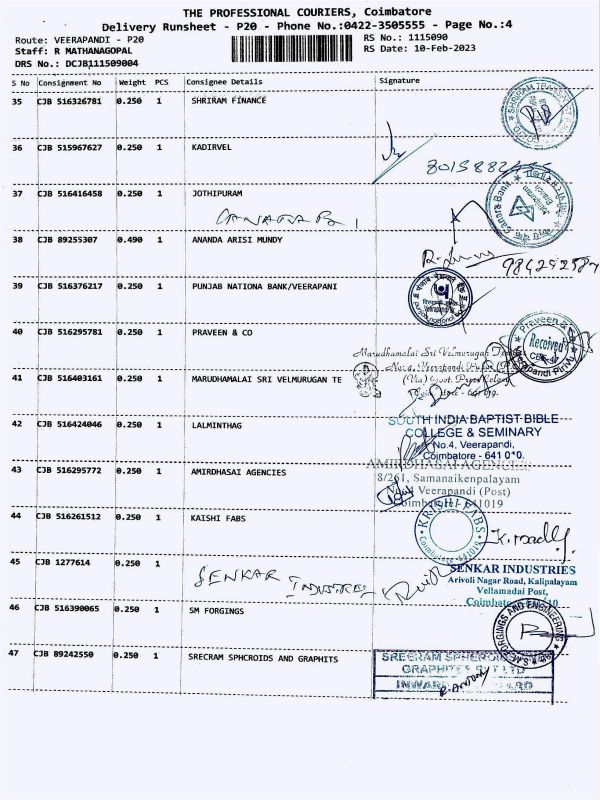 THE PROFESSIONAL COURIERS, Coimbatore
Delivery Runsheet - P20 - Phone No.:0422-3505555 - Page No.:4
Route: VEERAPANDI - P20
RS No.: 1115090
Staff: R MATHANAGOPAL
RS Date: 10-Feb-2023
DRS No.: DCJB111509004
S No Consignment No Weight PCS Consignee Details Signature
35 CJB 516326781 0.250 1 SHRIRAM FINANCE
36 CJB 515967627 0.250 1 KADIRVEL
37 CJB 516416458 0.250 1 JOTHIPURAM
Canara Bank
38 CJB 89255307 0.490 1 ANANDA ARISI MUNDY
39 CJB 516376217 0.250 1 PUNJAB NATIONA BANK/VEERAPANI
40 CJB 516295781 0.250 1 PRAVEEN & CO
Praveen &
Received
Veerapandi
Marudhamalai Sri Velmurugan
41 CJB 516403161 0.250 1 MARUDHAMALAI SRI VELMURUGAN TE
42 CJB 516424046 0.250 1 LALMINTHAG
SOUTH INDIA BAPTIST BIBLE
COLLEGE & SEMINARY
No.4, Veerapandi,
Coimbatore - 641 0*0.
43 CJB 516295772 0.250 1 AMIRDHASAI AGENCIES
AMIRDHASAI AGENCIES
8/261, Samanaikenpalayam
Veerapandi (Post)
44 CJB 516261512 0.250 1 KAISHI FABS
FABS
Coimbatore-641019
45 CJB 1277614 0.250 1
SENKAR
SENKAR INDUSTRIES
Arivoli Nagar Road, Kalipalayam
Vellamadai Post,
46 CJB 516390065 0.250 1 SM FORGINGS
FORGINGS AND ENGINEERING
47 CJB 89242550 0.250 1 SRECRAM SPHCROIDS AND GRAPHITS
SREERAM
INWARD